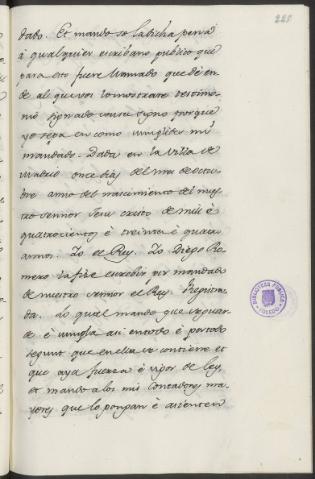 221
dado. Et mando so la dicha pena
á qualquier escribano publico que
para esto fuere llamado que dé en-
de al que vos lo mostrare testimo-
nio signado con su signo porque
yo sepa en como cumplides mi
mandado. Dada en la Villa de
once dias del mes de Octu-
bre año del nascimiento del nues-
tro sennor Jesu cristo de mill é
quatrocientos é treinta é quatro
annos. Yo el Rey. Yo Diego Ro-
mero la fise escribir por mandado
de nuestro sennor el Rey. Registra-
da. Lo qual mando que se guar-
de é cumpla asi en todo é por todo
segunt que en ella se contiene et
que aya fuerza é vigor de ley,
et mando a los mis Contadores ma-
yores que lo pongan é asienten
BIBLIOTECA PUBLICA
TOLEDO